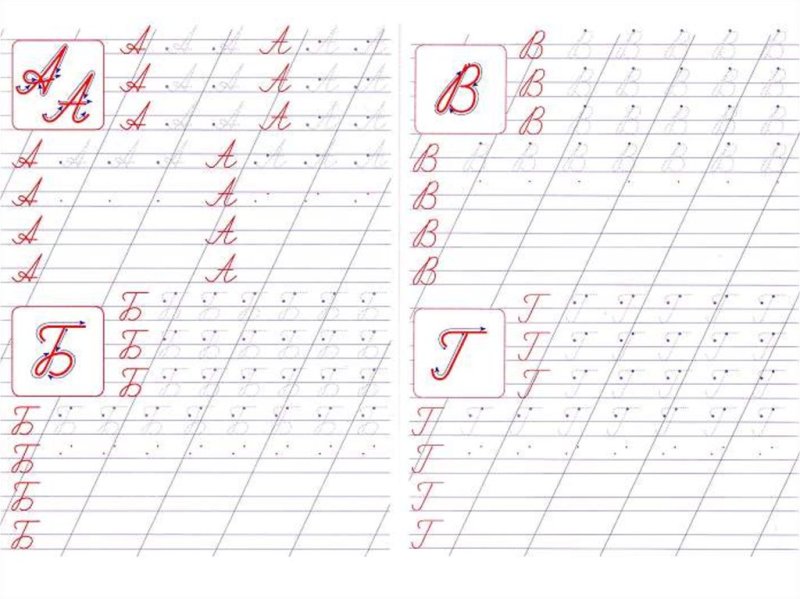 А А
А А А А А А
А А А А А А
А А А А А А
А А А А А А А А
А А
А А
А А
Б
Б Б Б Б Б Б Б
Б Б Б Б Б Б Б
Б Б Б Б Б Б Б
Б Б Б Б Б Б Б Б Б
Б
Б
Б
В
В В В В В В
В В В В В В
В В В В В В
В В В В В В В В
В
В
В
Г
Г Г Г Г Г Г
Г Г Г Г Г Г
Г Г Г Г Г Г
Г Г Г Г Г Г Г Г
Г
Г
Г